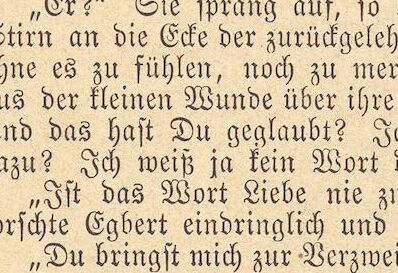 „Er?“ Sie sprang auf, so
Stirn an die Ecke der zurückgeleh
hne es zu fühlen, noch zu mer
us der kleinen Wunde über ihre
nd das hast Du geglaubt? Ic
azu? Ich weiß ja kein Wort
„Ist das Wort Liebe nie zu
orschte Egbert eindringlich und
„Du bringst mich zur Verzwei